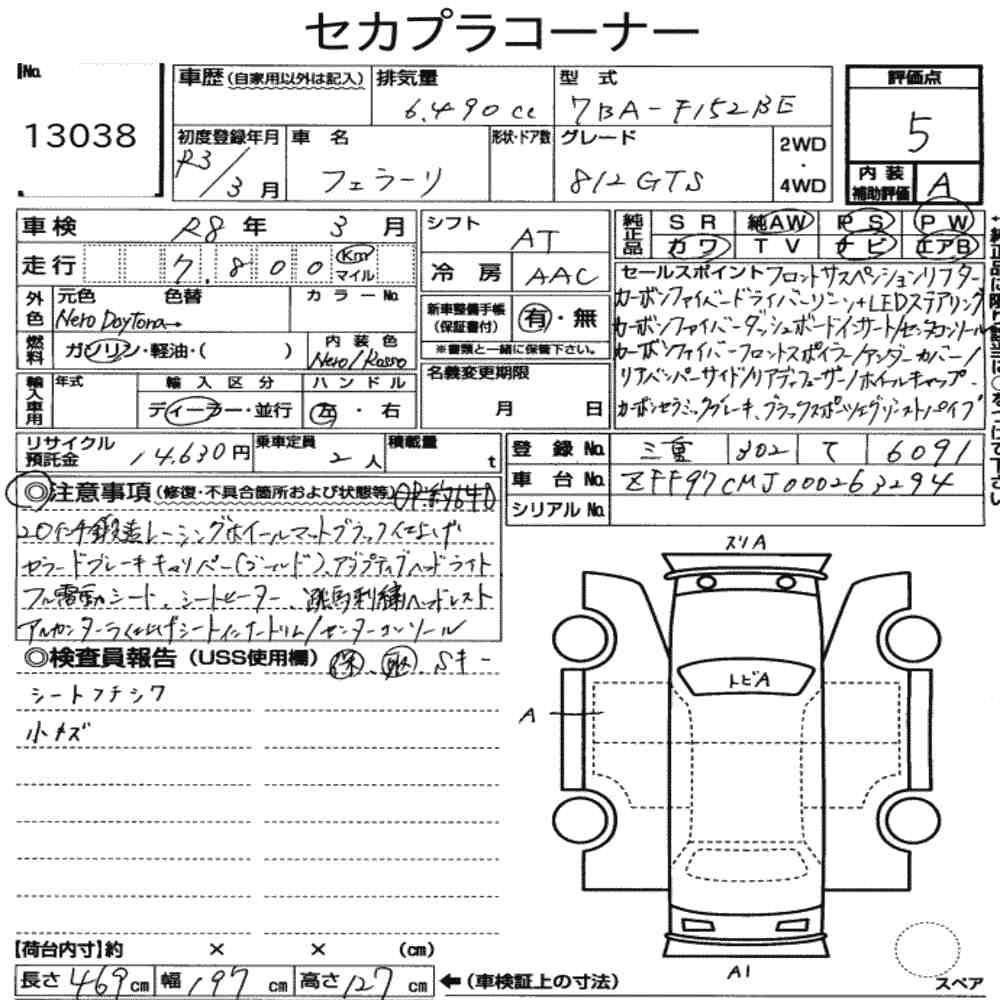 セカプラコーナー
No.
13038
車歴(自家用以外は記入)
排気量
6,490cc
型 式
7BA-F152BE
初度登録年月
R3/3月
車 名
フェラーリ
形状・ドア数
グレード
812GTS
2WD
・
4WD
評価点
5
内装
補助評価
A
車検 R8年 3月
走行 7,800 Km
マイル
シフト
AT
冷房
AAC
純正品
SR 純AW PS PW
カワ TV ナビ エアB
外色
元色 色替
カラーNo.
Nero Daytona→
燃料
ガソリン・軽油・( )
内装色
Nero/Rosso
輸入車用
年式
輸入区分
ディーラー・並行
ハンドル
左・右
新車整備手帳
(保証書付)
有・無
※書類と一緒に保管下さい。
名義変更期限
月 日
セールスポイント フロントサスペンションリフター
カーボンファイバードライバーゾーン+LEDステアリング
カーボンファイバーダッシュボードインサート/センターコンソール
カーボンファイバーフロントスポイラー/アンダーカバー/
リアバンパーサイド/リアディフューザー/ホイールキャップ
カーボンセラミックブレーキ、ブラックスポーツエグゾーストパイプ
リサイクル
預託金
14,630円
乗車定員
2人
積載量
t
登録No.
三重 302 て 6091
車台No.
ZFF97CMJ000263294
シリアルNo.
◎注意事項(修復・不具合箇所および状態等)
20インチ鍛造レーシングホイールマットブラック仕上げ
ブレーキキャリパー(ゴールド)、アダプティブヘッドライト
フル電動シート、シートヒーター、跳馬刺繍ヘッドレスト
アルカンターラ仕上げシートインナートリム/センターコンソール
◎検査員報告(USS使用欄)
保、取、Sキー
シートフチシワ
小キズ
ズリA
トビA
A
A1
スペア
【荷台内寸】約 × × (cm)
長さ469cm 幅197cm 高さ127cm
←(車検証上の寸法)